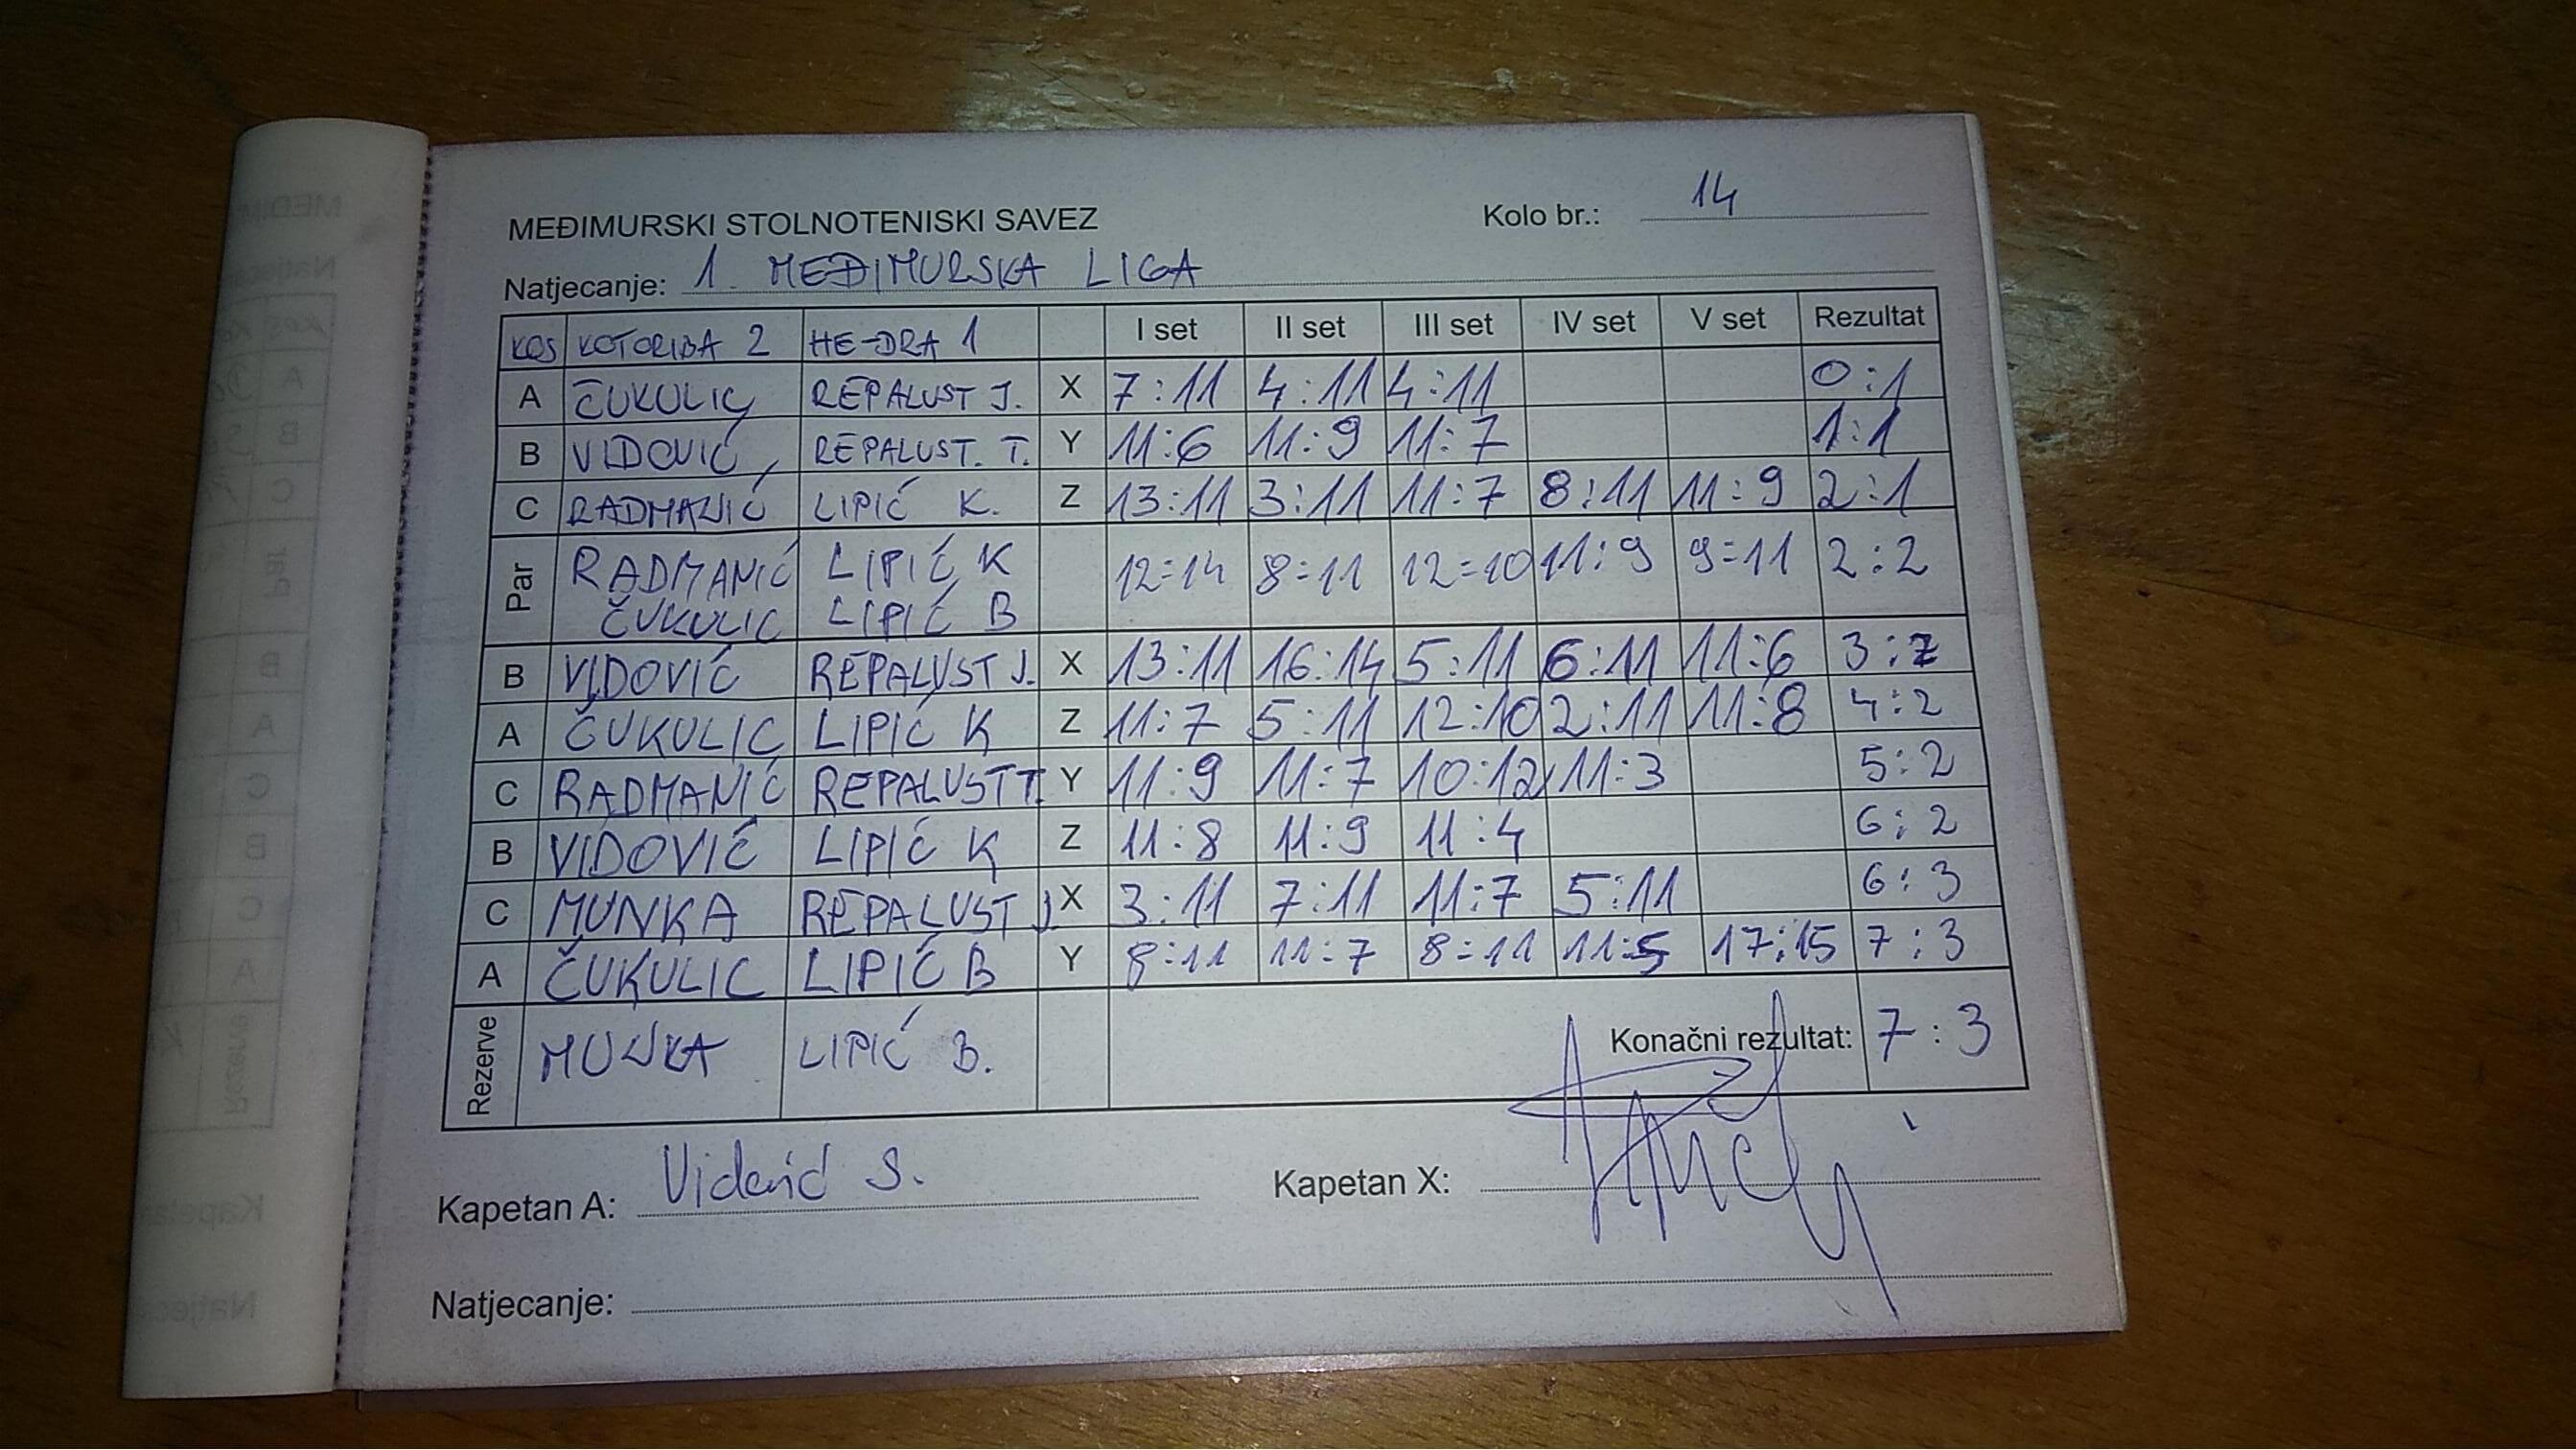 MEĐIMURSKI STOLNOTENISKI SAVEZ Kolo br.: 14
Natjecanje: 1. MEĐIMURSKA LIGA
KOS KOTORIBA 2 HE-DRA 1 I set II set III set IV set V set Rezultat
A ČUKULIĆ REPALUST J. X 7:11 4:11 4:11 0:1
B VIDOVIĆ REPALUST. T. Y 11:6 11:9 11:7 1:1
C RADMANIĆ LIPIĆ K. Z 13:11 3:11 11:7 8:11 11:9 2:1
Par RADMANIĆ LIPIĆ K 12=14 8=11 12=10 11:9 9=11 2:2
ČUKULIC LIPIĆ B
B VIDOVIĆ REPALUST J. X 13:11 16:14 5:11 6:11 11:6 3:2
A ČUKULIC LIPIĆ K Z 11:7 5:11 12:10 2:11 11:8 4:2
C RADMANIĆ REPALUST T. Y 11:9 11:7 10:12 11:3 5:2
B VIDOVIĆ LIPIĆ K Z 11:8 11:9 11:4 6:2
C MUNKA REPALUST J. X 3:11 7:11 11:7 5:11 6:3
A ČUKULIC LIPIĆ B Y 8:11 11:7 8=11 11:5 17:15 7:3
Rezerve MUNKA LIPIĆ B. Konačni rezultat: 7:3
Kapetan A: Vidović S. Kapetan X:
Natjecanje: